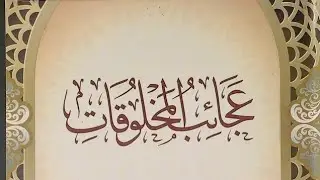 عَجَائِبُ الْمَخْلُوقَاتِ